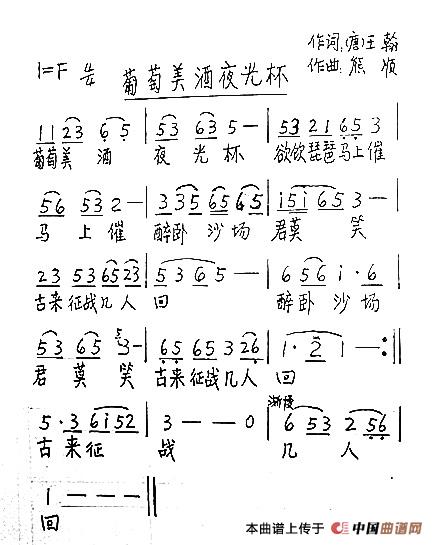 作词:(唐)王翰
1=F 4/4 葡萄美酒夜光杯
作曲:熊顺
11 23 6 5 | 53 63 5 - | 53 21 65 3
葡萄美 酒 夜 光 杯 欲饮琵琶马上催
56 53 2 - | 335 65 65 | i5i 65 3 -
马 上 催 醉卧 沙 场 君莫 笑
23 53 65 23 | 5 3 6 5 - - | 6 56 i·6
古来征战几人 回 醉卧 沙场
53 65 3 - | 65 65 3 26 | 1· 2 1 - :||
君 莫 笑 古来征战几人 回
渐慢
5·3 6i52 | 3 - - 0 | 6 53 2 56
古来征 战 几 人
1 - - - ||
回
本曲谱上传于 中国曲谱网